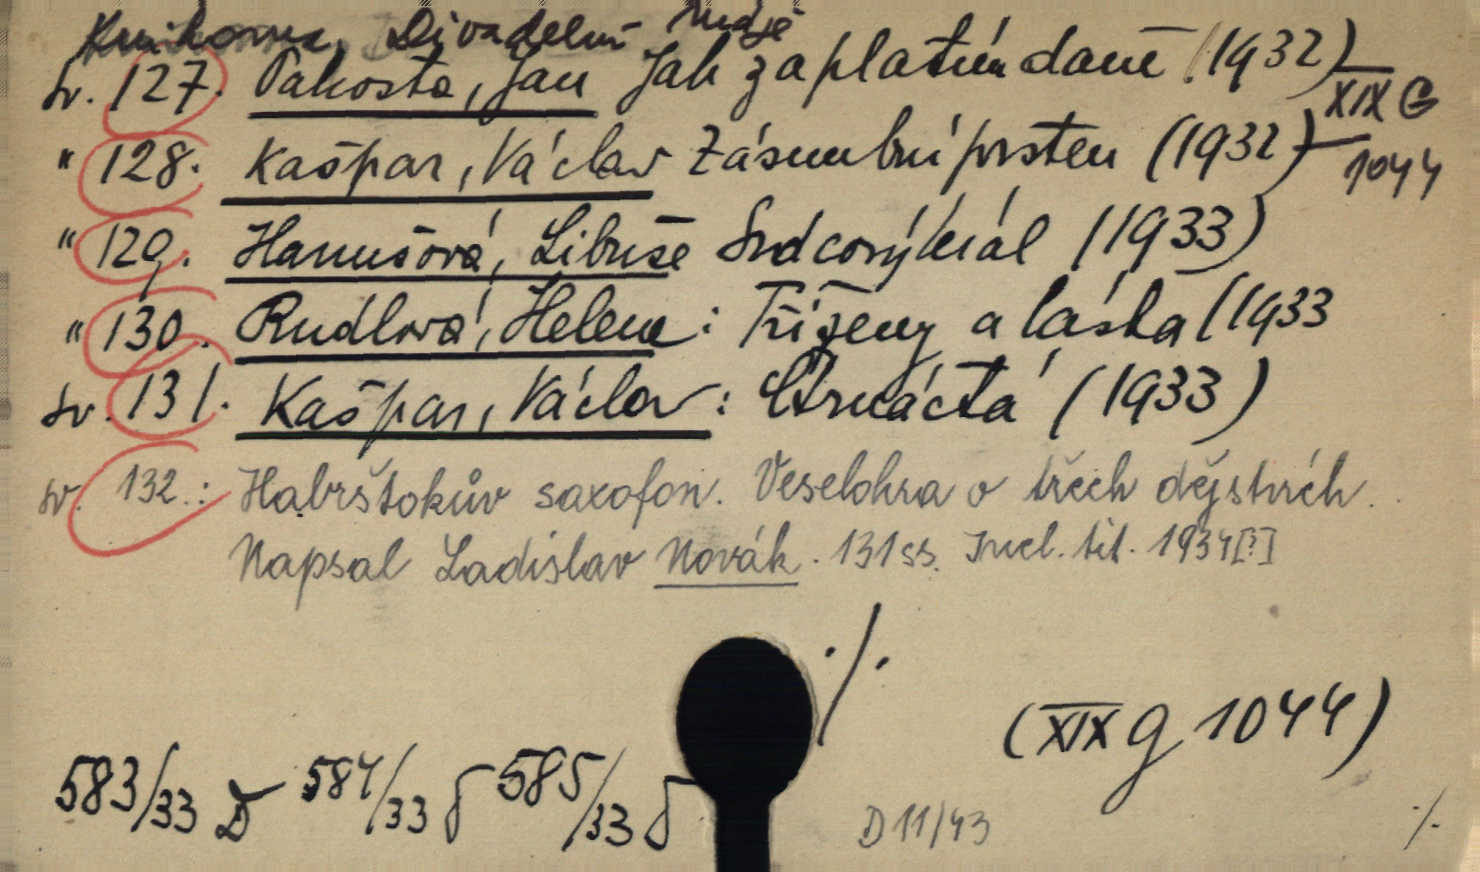 Knihovna Divadelní
Sv. 127. Pakosta, Jan Jak zaplatím daně (1932) XIX G
" 128. Kašpar, Václav Zásnubní prsten (1932) 1044
" 129. Hanušová, Libuše Srdcový král (1933)
" 130. Rudlová, Helena: Tři ženy a láska (1933
Sv. 131. Kašpar, Václav: Čtrnáctá (1933)
sv. 132.: Habrštokův saxofon. Veselohra o třech dějstvích.
Napsal Ladislav Novák. 131 ss. Incl. tit. 1934[?]
./.
(XIX g 1044)
583/33 D 584/33 D 585/33 D
D 11/43
./.